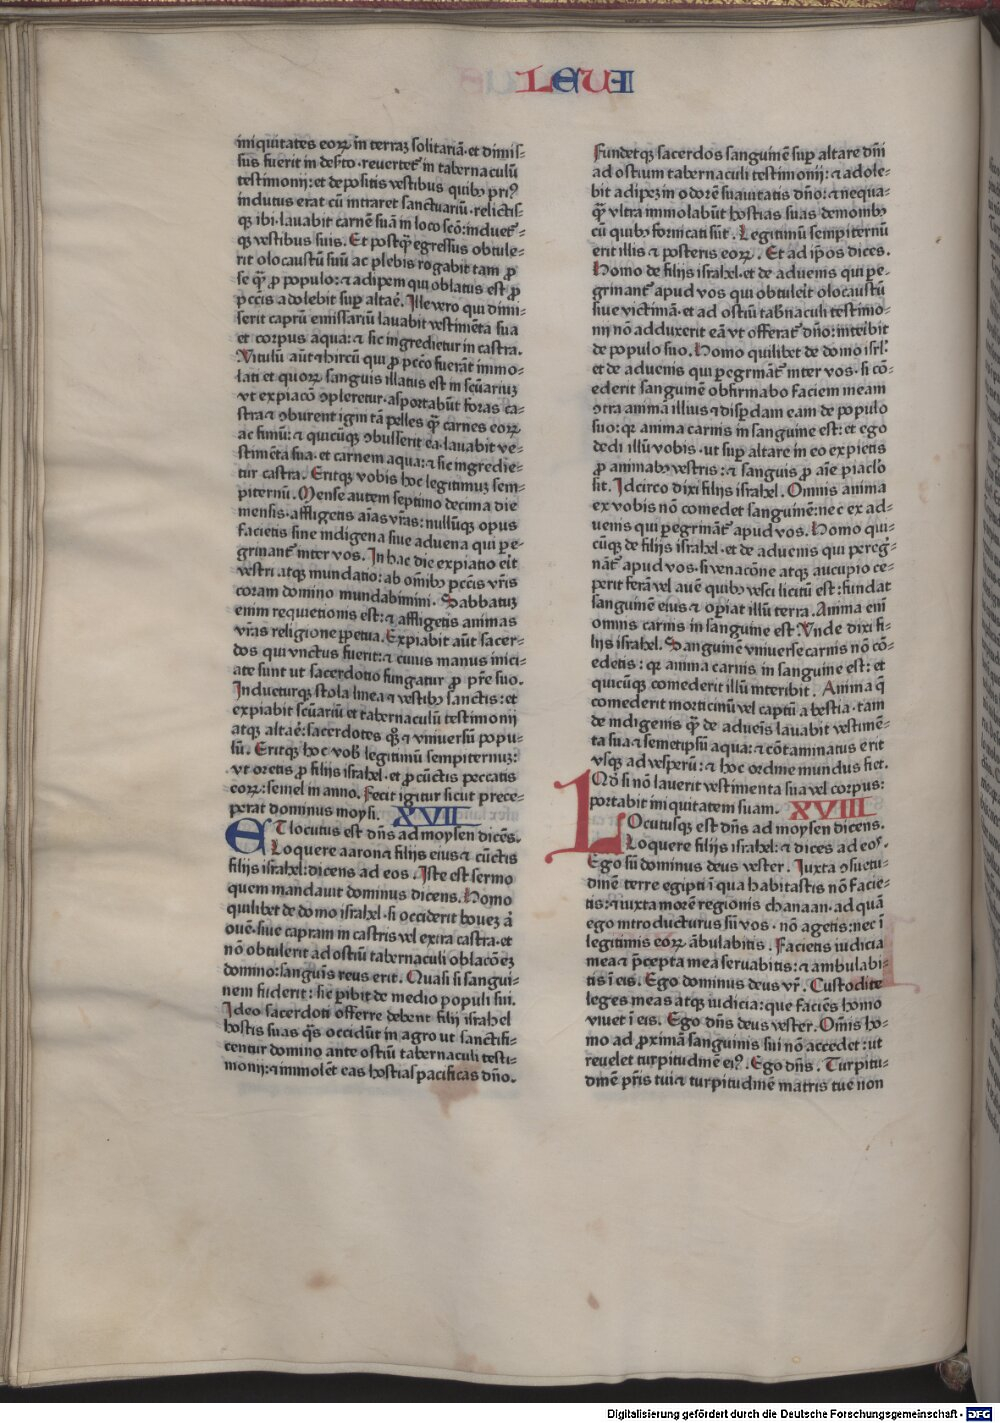 LEUI
iniquitates eoꝝ in terraꝫ solitariā·et dimis-
sus fuerit in deſ̉to·revertet᷑ in tabernaculū
testimonij:et depositis vestibus quibꝫ pri᷒
indutus erat cū intraret sanctuariū·relictis-
qꝫ ibi·lavabit carnē suā in loco scō:induet᷑-
qꝫ vestibus suis. Et postqꝫ̄ egressus obtule-
rit olocaustū suū ac plebis rogabit tam ꝓ
se qꝫ̄ ꝓ populo:⁊ adipem qui oblatus est ꝓ
pccīs adolebit suꝑ altaē. Ille vero qui dimi-
serit caprū emissariū lavabit vestimēta sua
et corpus aqua:⁊ sic ingredietur in castra.
Vitulū aūt ⁊ hircū qui ꝓ pccō fuerāt immo-
lati et quoꝝ sanguis illatus est in scūariuꝫ
vt expiacō ꝯpleretur·asportabūt foras ca-
stra ⁊ ꝯburent igni tā pelles qꝫ̄ carnes eoꝝ
ac fimū:⁊ quicūqꝫ ꝯbusserit ea·lavabit ve-
stimēta sua·et carnem aqua:⁊ sic ingredie-
tur castra. Eritqꝫ vobis hoc legitimuꝫ sem-
piternū. Mense autem septimo decima die
mensis·affligetis aīas vr̄as:nullūqꝫ opus
facietis sine indigena sive advena qui ꝑe-
grinant᷑ inter vos. In hac die expiatio eīt
vestri atqꝫ mundatio:ab om̄ibꝫ pccīs vr̄is
coram domino mundabimini. Sabbatuꝫ
enim requietionis est:⁊ affligetis animas
vr̄as religione ꝑpetua. Expiabit aūt sacer-
dos qui vnctus fuerit:⁊ cuius manus inici-
ate sunt ut sacerdotio fungatur ꝓ pr̄e suo.
Indueturqꝫ stola linea ⁊ vestibꝫ sanctis:et
expiabit scūariū et tabernaculū testimonij
atqꝫ altaē:sacerdotes qꝫ̄ ⁊ vniversū popu-
lū. Eritqꝫ hoc vob̄ legitimū sempiternuꝫ:
vt oretis ꝓ filijs israhel·et ꝓ cūctis peccatis
eoꝝ:semel in anno. Fecit igitur sicut prece-
perat dominus moysi. XVII
ET locutus est dn̄s ad moysen dicēs.
Loquere aaron ⁊ filijs eius ⁊ cūctis
filijs israhel:dicens ad eos. Iste est sermo
quem mandavit dominus dicens. Homo
quilibet de domo israhel·si occiderit boveꝫ aūt
ouē·sive capram in castris vel extra castra·et
nō obtulerit ad ostiū tabernaculi oblacōeꝫ
domino:sanguīs reus erit. Quasi si sangui-
nem fuderit:sic ꝑibit de medio populi sui.
Ideo sacerdoti offerre debent filij israhel
hostis suas qs̄ occidūt in agro ut sanctifi-
centur domino ante ostiū tabernaculi testi-
monij:⁊ immolēt eas hostias pacificas dn̄o.
Fundetqꝫ sacerdos sanguinē suꝑ altare dn̄i
ad ostium tabernaculi testimonij:⁊ adole-
bit adipeꝫ in odorē suavitatis dn̄o:⁊ nequa-
qꝫ̄ vltra immolabūt hostias suas demonibꝫ
cū quibꝫ fornicati sūt. Legitimū sempiternū
erit illis ⁊ posteris eoꝝ. Et ad ip̄os dices.
Homo de filijs israhel·et de advenis qui ꝑe-
grinant᷑ apud vos qui obtuleīt olocaustū
sive victimā·et ad ostiū tab̄naculi testimo-
nij nō adduxerit eā vt offerat᷑ dn̄o:interibit
de populo suo. Homo quilibet de domo isrl̄
et de advenis qui ꝑegrināt᷑ inter vos·si cō-
ederit sanguinē obfirmabo faciem meam
ꝯtra animā illius ⁊ disꝑdam eam de populo
suo:qꝫ anima carnis in sanguine est:et ego
dedi illū vobis·ut suꝑ altare in eo expietis
ꝓ animabꝫ vestris:⁊ sanguis ꝓ aīe piaclō
sit. Idcirco dixi filijs israhel. Omnis anima
ex vobis nō comedet sanguinē:nec ex ad-
venis qui ꝑegrināt᷑ apud vos. Homo qui-
cūqꝫ de filijs israhel·et de advenis qui pereg̉-
nāt᷑ apud vos·si venacōne atqꝫ aucupio ce-
perit ferā vel avē quibꝫ vesci licitū est:fundat
sanguinē eius ⁊ oꝑiat illū terra. Anima enī
omnis carnis in sanguine est. Vnde dixi fi-
lijs israhel. Sanguinē vniverse carnis nō cō-
edetis:qꝫ anima carnis in sanguine est:et
quicūqꝫ comederit illū interibit. Anima q̄
comederit morticinū vel captū a bestia·tam
de indigenis qꝫ̄ de adveīs lavabit vestimē-
ta sua ⁊ semetipsū aqua:⁊ cōtaminatus erit
vsqꝫ ad vesperū:⁊ hoc ordine mundus fiet.
Qd̄ si nō laverit vestimenta sua vel corpus:
portabit iniquitatem suam. XVIII
LOcutusqꝫ est dn̄s ad moysen dicens.
Loquere filijs israhel:⁊ dices ad eos.
Ego sū dominus deus vester. Iuxta ꝯsuetu-
dinē terre egipti ī qua habitastis nō facie-
tis:⁊ iuxta morē regionis chanaan·ad quā
ego introducturus sū vos·nō agetis:nec ī
legitimis eoꝝ ābulabitis. Facietis iudicia
mea ⁊ p̄cepta mea servabitis:⁊ ambulabi-
tis ī eis. Ego dominus deus vr̄. Custodite
leges meas atqꝫ iudicia:que faciēs homo
vivet ī eis. Ego dn̄s deus vester. Om̄is ho-
mo ad ꝓximā sanguinis sui nō accedet:ut
revelet turpitudinē ei᷒. Ego dn̄s. Turpitu-
dinē pr̄is tui ⁊ turpitudinē matris tue non
Digitalisierung gefördert durch die Deutsche Forschungsgemeinschaft - DFG